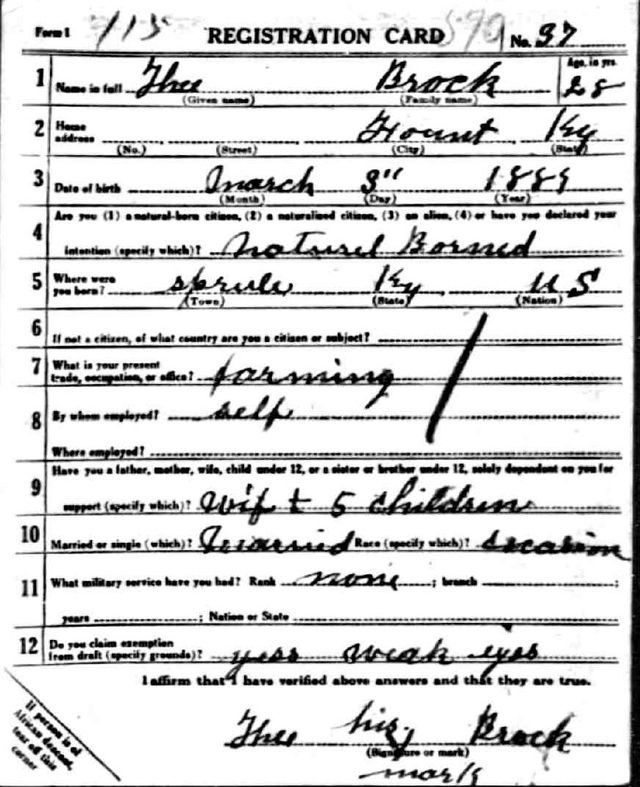 Form 1 713 REGISTRATION CARD 590 No. 37
1 Name in full Thee Brock Age, in yrs. 28
(Given name) (Family name)
2 Home address Hount Ky
(No.) (Street) (City) (State)
3 Date of birth March 3" 1889
(Month) (Day) (Year)
4 Are you (1) a natural-born citizen, (2) a naturalized citizen, (3) an alien, (4) or have you declared your
intention (specify which)? Naturel Borned
5 Where were you born? sprule Ky US
(Town) (State) (Nation)
6 If not a citizen, of what country are you a citizen or subject?
7 What is your present trade, occupation, or office? farming
8 By whom employed? self
Where employed?
9 Have you a father, mother, wife, child under 12, or a sister or brother under 12, solely dependent on you for
support (specify which)? Wif + 5 children
10 Married or single (which)? Married Race (specify which)?
11 What military service have you had? Rank none ; branch
years ; Nation or State
12 Do you claim exemption from draft (specify grounds)? yess weak eyes
I affirm that I have verified above answers and that they are true.
Thee his Brock
(Signature or mark)
mark
If person is of
African descent,
tear off this
corner